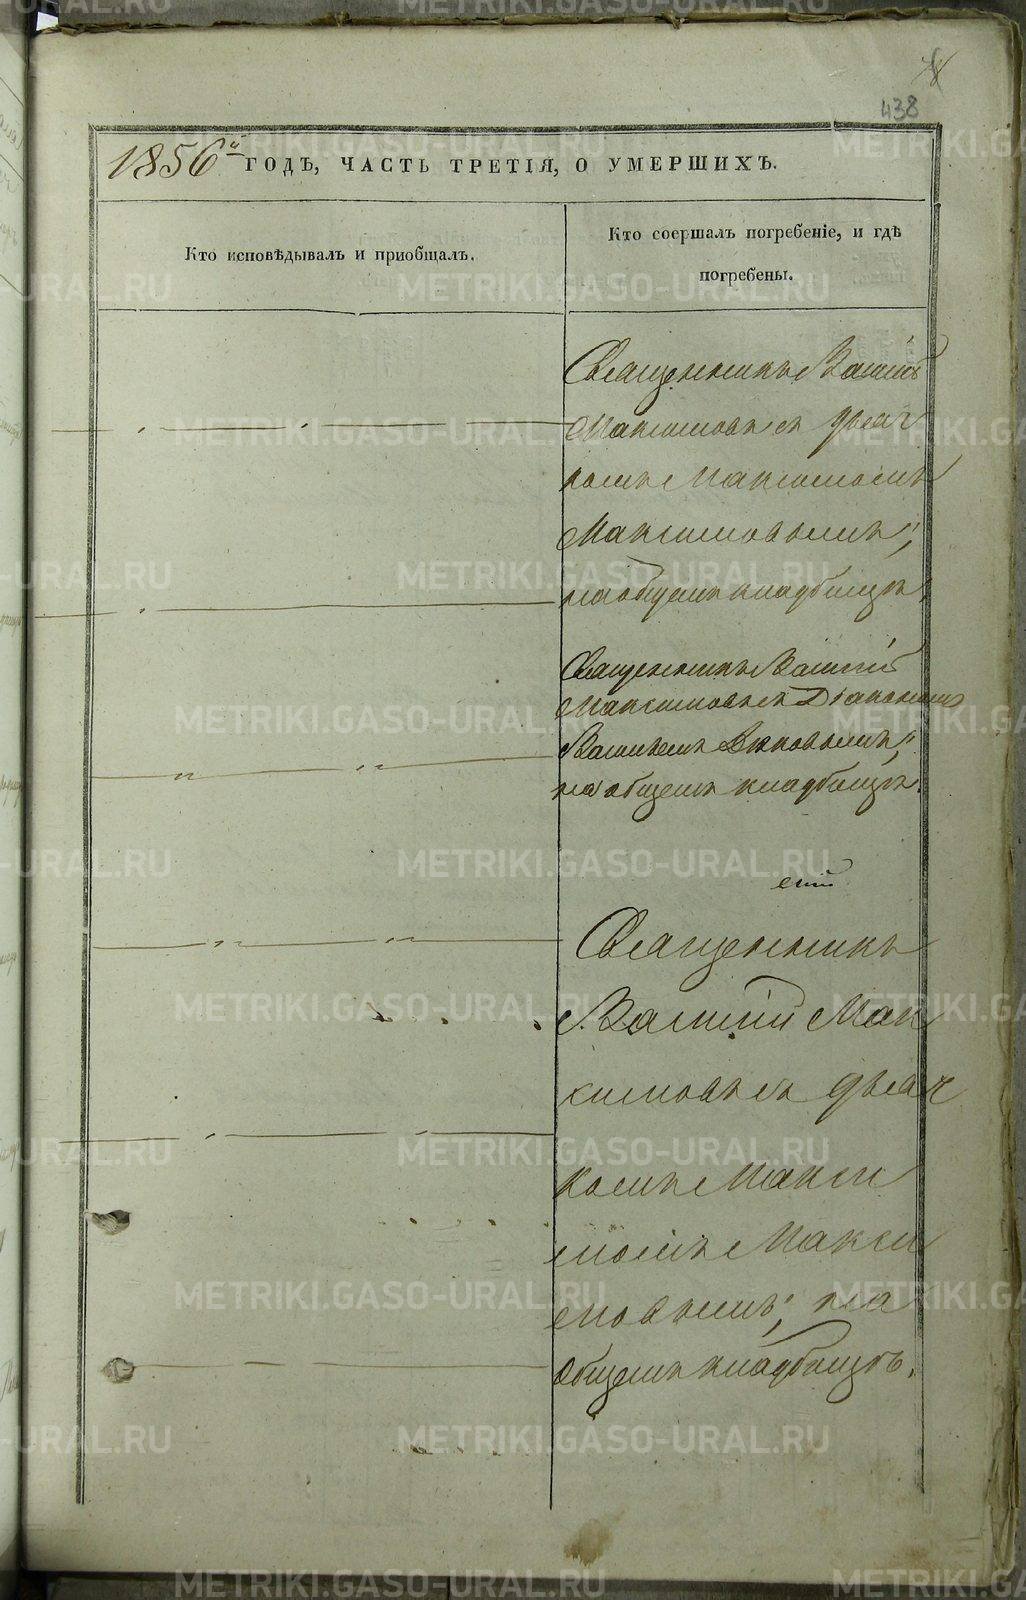 438
1856й ГОДЪ, ЧАСТЬ ТРЕТІЯ, О УМЕРШИХЪ.
Кто исповѣдывалъ и приобщалъ.
Кто соершалъ погребеніе, и гдѣ
погребены.
Священникъ Василій
Максимовъ съ дьяч
комъ Максимомъ
Максимовымъ;
на общемъ кладбищѣ.
Священникъ Василій
Максимовъ съ Діакономъ
Василіемъ
на общемъ кладбищѣ.
Священникъ
Василій Мак
симовъ съ дьяч
комъ Макси
момъ Макси
мовымъ; на
общемъ кладбищѣ.
METRIKI.GASO-URAL.RU